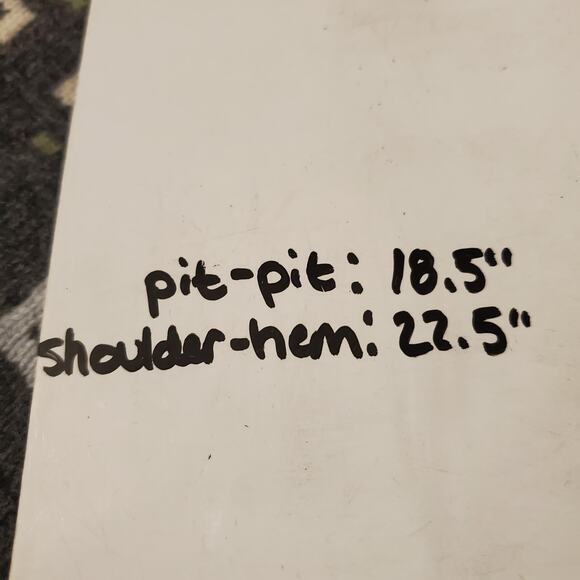 pit-pit: 18.5"
shoulder-hem: 22.5"